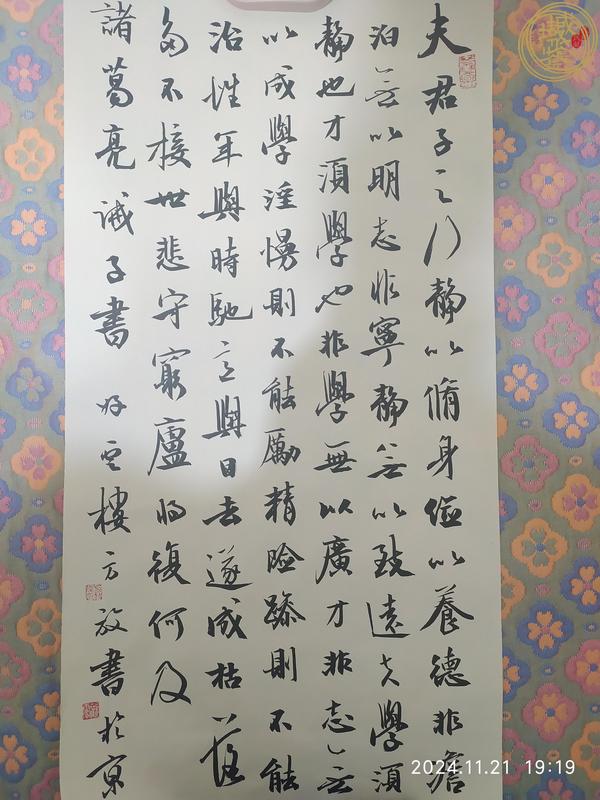 夫君子之行靜以脩身儉以養德非澹
泊無以明志非寧靜無以致遠夫學須
靜也才須學也非學無以廣才非志無
以成學淫慢則不能勵精險躁則不能
治性年與時馳意與日去遂成枯落
多不接世悲守窮廬將復何及
諸葛亮誡子書 樓方放書於京
2024.11.21 19:19